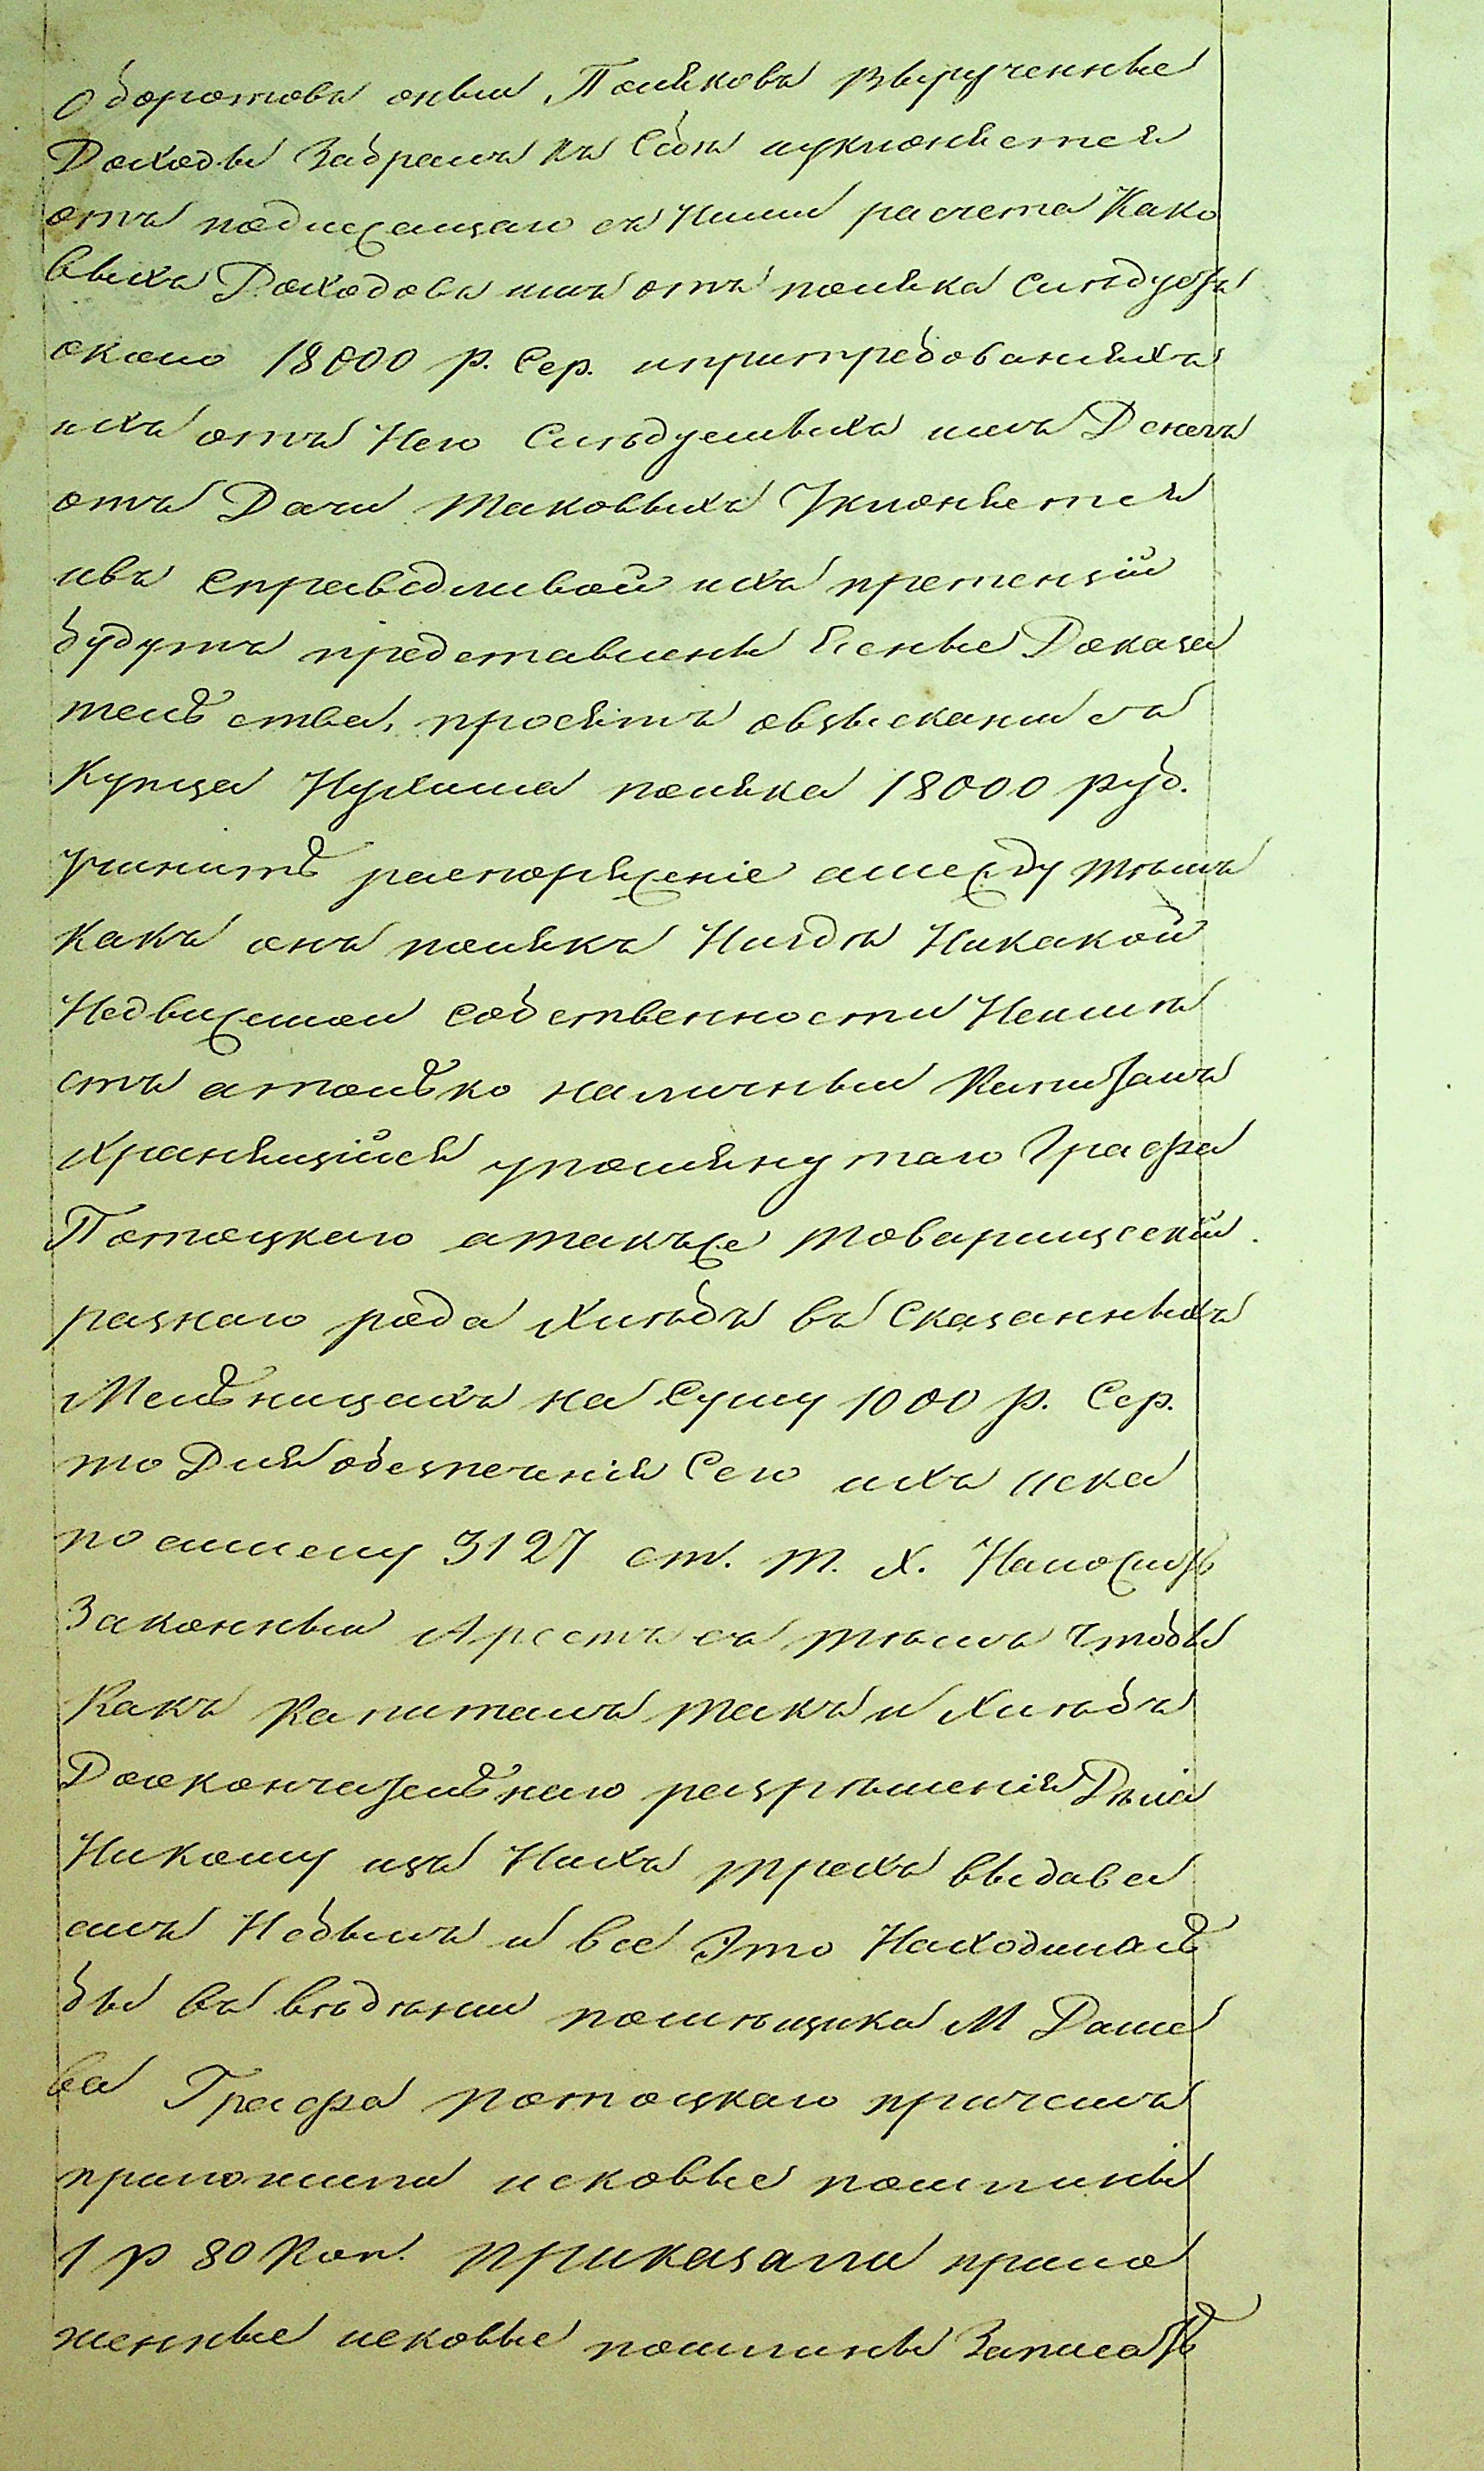 Оборотовъ оный Поляковъ вырученные
Доходы Забралъ къ Себѣ иуклоняется
отъ подлежащаго съ Ними расчета Како
выхъ Доходовъ имъ отъ поляка Слѣдуетъ
около 18000 р. Сер. ипритребованіяхъ
ихъ отъ Него Слѣдуемыхъ имъ Денегъ
отъ Дачи таковыхъ Уклоняется
ивъ Справедливой ихъ претензіи
будутъ представлены Ясные Доказа
тельства, просятъ овзысканіи съ
Купца Нухима поляка 18000 руб.
Учинить распоряженіе амежду тѣмъ
Какъ онъ полякъ Нигдѣ Никакой
Недвижимой Собственности Неимѣ
етъ атолько наличный Капиталъ
Хранящійся упомянутаго Графа
Потоцкаго атакъже товарищескій
разнаго рода Хлѣбъ въ Сказанныхъ
Мельницахъ на Суму 1000 р. Сер.
то Для обезпеченія Сего ихъ иска
посилему 3127 ст. т. X. Наложить
Законный Арестъ съ тѣмъ Чтобы
Какъ Капиталъ такъ и Хлѣбъ
Доокончательнаго разрѣшенія Дѣла
Никому изъ Нихъ трехъ выдава
емъ Небылъ и все Это Находилось
бы въ вѣдѣніи помѣщика М Даше
ва Графа потоцкаго причемъ
приложили исковые пошлины
1 р 80 Коп. приказали прило
женные исковые пошлины Записать